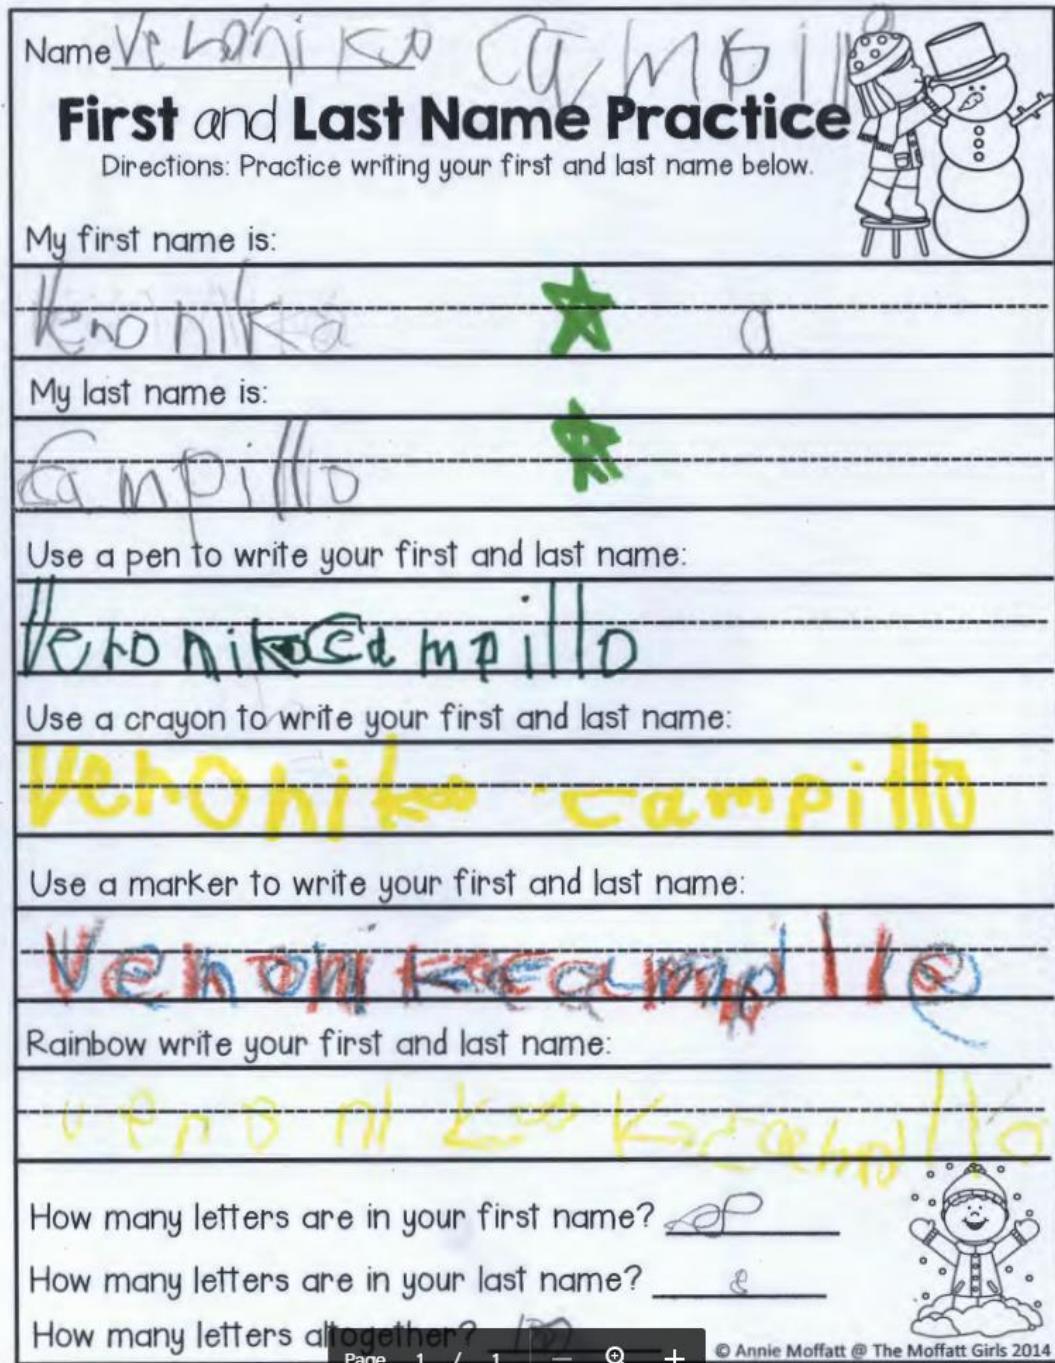 Name Veroniko Campill
First and Last Name Practice
Directions: Practice writing your first and last name below.
My first name is:
Veronika a
My last name is:
Campillo
Use a pen to write your first and last name:
Veroniko Campillo
Use a crayon to write your first and last name:
Veroniko campillo
Use a marker to write your first and last name:
Rainbow write your first and last name:
How many letters are in your first name?
How many letters are in your last name? 8
How many letters altogether?
Page 1 / 1 — +
© Annie Moffatt @ The Moffatt Girls 2014